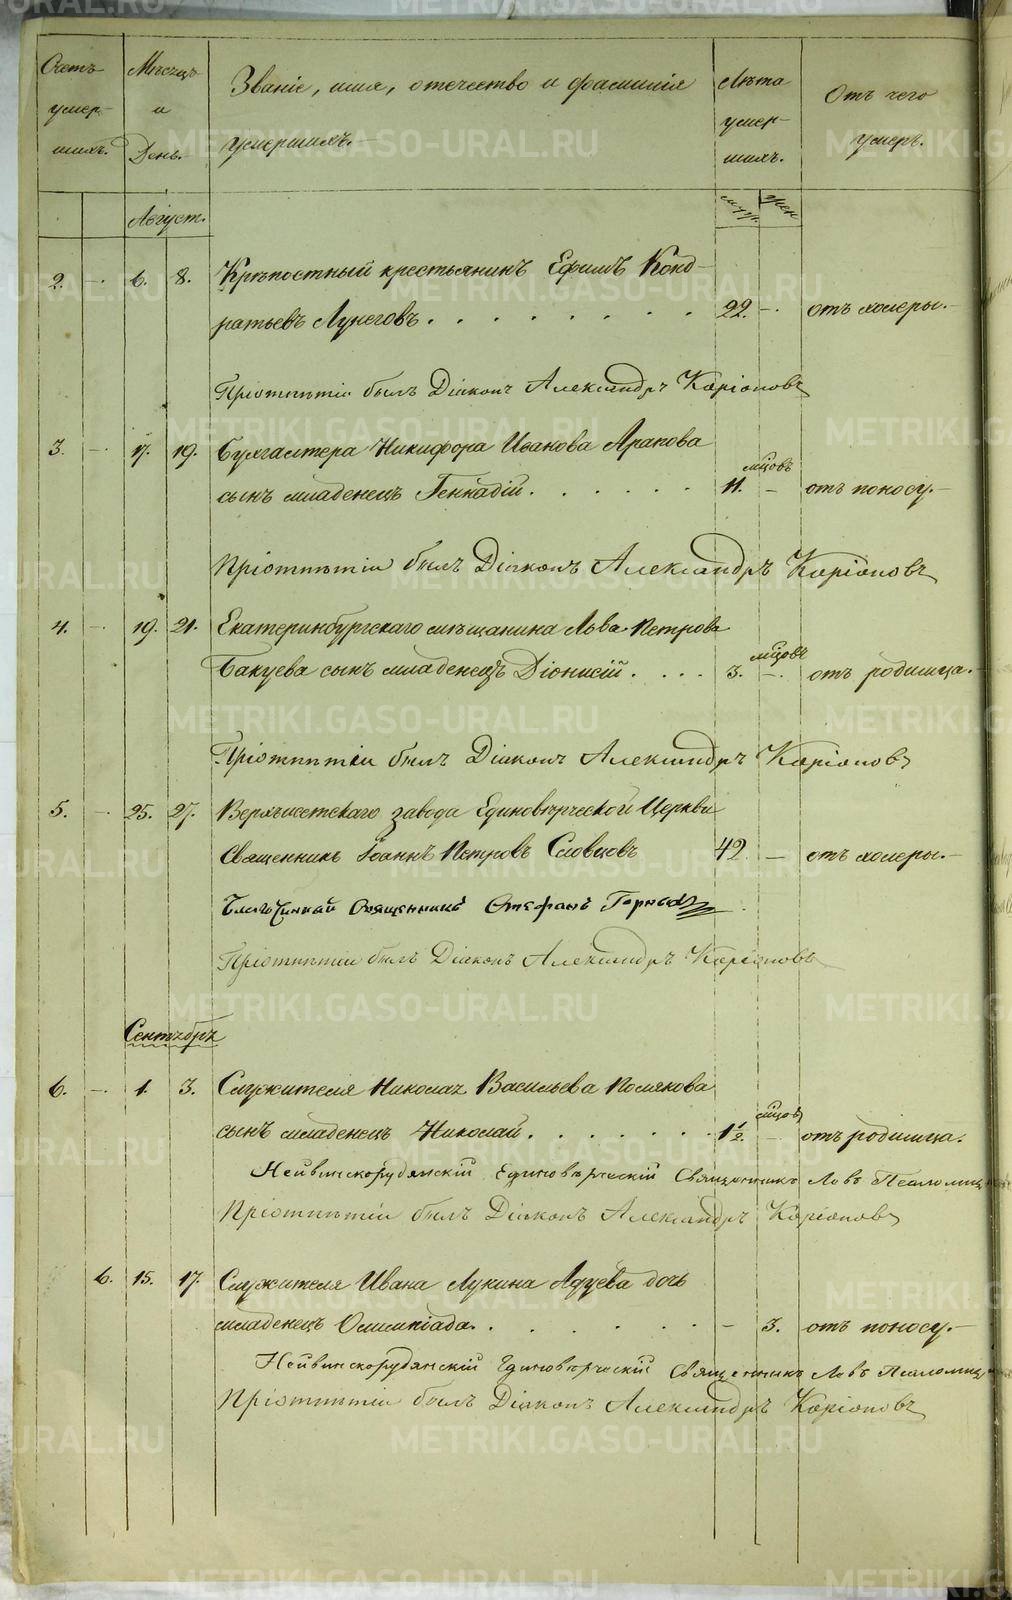 Счетъ умер- шихъ.
Мѣсяцъ и День.
Званіе, имя, отчество и фамилія
умершихъ.
Лѣта умер- шихъ.
Отъ чего умеръ.
Август.
муж. жен
2. - 6. 8. Крѣпостный крестьянинъ Ефимъ Конд-
ратьевъ Лунеговъ . . . . . . . . 22. - отъ холеры.-
При отпѣтіи былъ Діаконъ Александръ Каріоновъ
3. - 17. 19. Бухгалтера Никифора Иванова Арапова
мѣсцовъ
сынъ младенецъ Геннадій . . . . . . 11. - отъ поносу.-
При отпѣтіи былъ Діаконъ Александръ Каріоновъ
4. - 19. 21. Екатеринбургскаго мѣщанина Льва Петрова
мѣсцовъ
Бакуева сынъ младенецъ Діонисій . . . . 3. - отъ родимца.
При отпѣтіи былъ Діаконъ Александръ Каріоновъ
5. - 25. 27. Верхъисетскаго завода Единовѣрческой Церкви
Священникъ Іоаннъ Петровъ Словцовъ 42 - отъ холеры.-
Благочинный Священникъ Стефанъ
При отпѣтіи былъ Діаконъ Александръ Каріоновъ
Сентябрь
6. - 1. 3. Служителя Николая Васильева Полякова
мѣсцовъ
сынъ младенецъ Николай . . . . . . . 1½ - отъ родимца.
Нейвинскорудянскій Единовѣрческій Священникъ Левъ
При отпѣтіи былъ Діаконъ Александръ Каріоновъ
6. 15. 17. Служителя Ивана Лукина Адуева дочь
младенецъ Олимпіада . . . . . . - 3. отъ поносу.-
Нейвинскорудянскій Единовѣрческій Священникъ Левъ
При отпѣтіи былъ Діаконъ Александръ Каріоновъ
METRIKI.GASO-URAL.RU